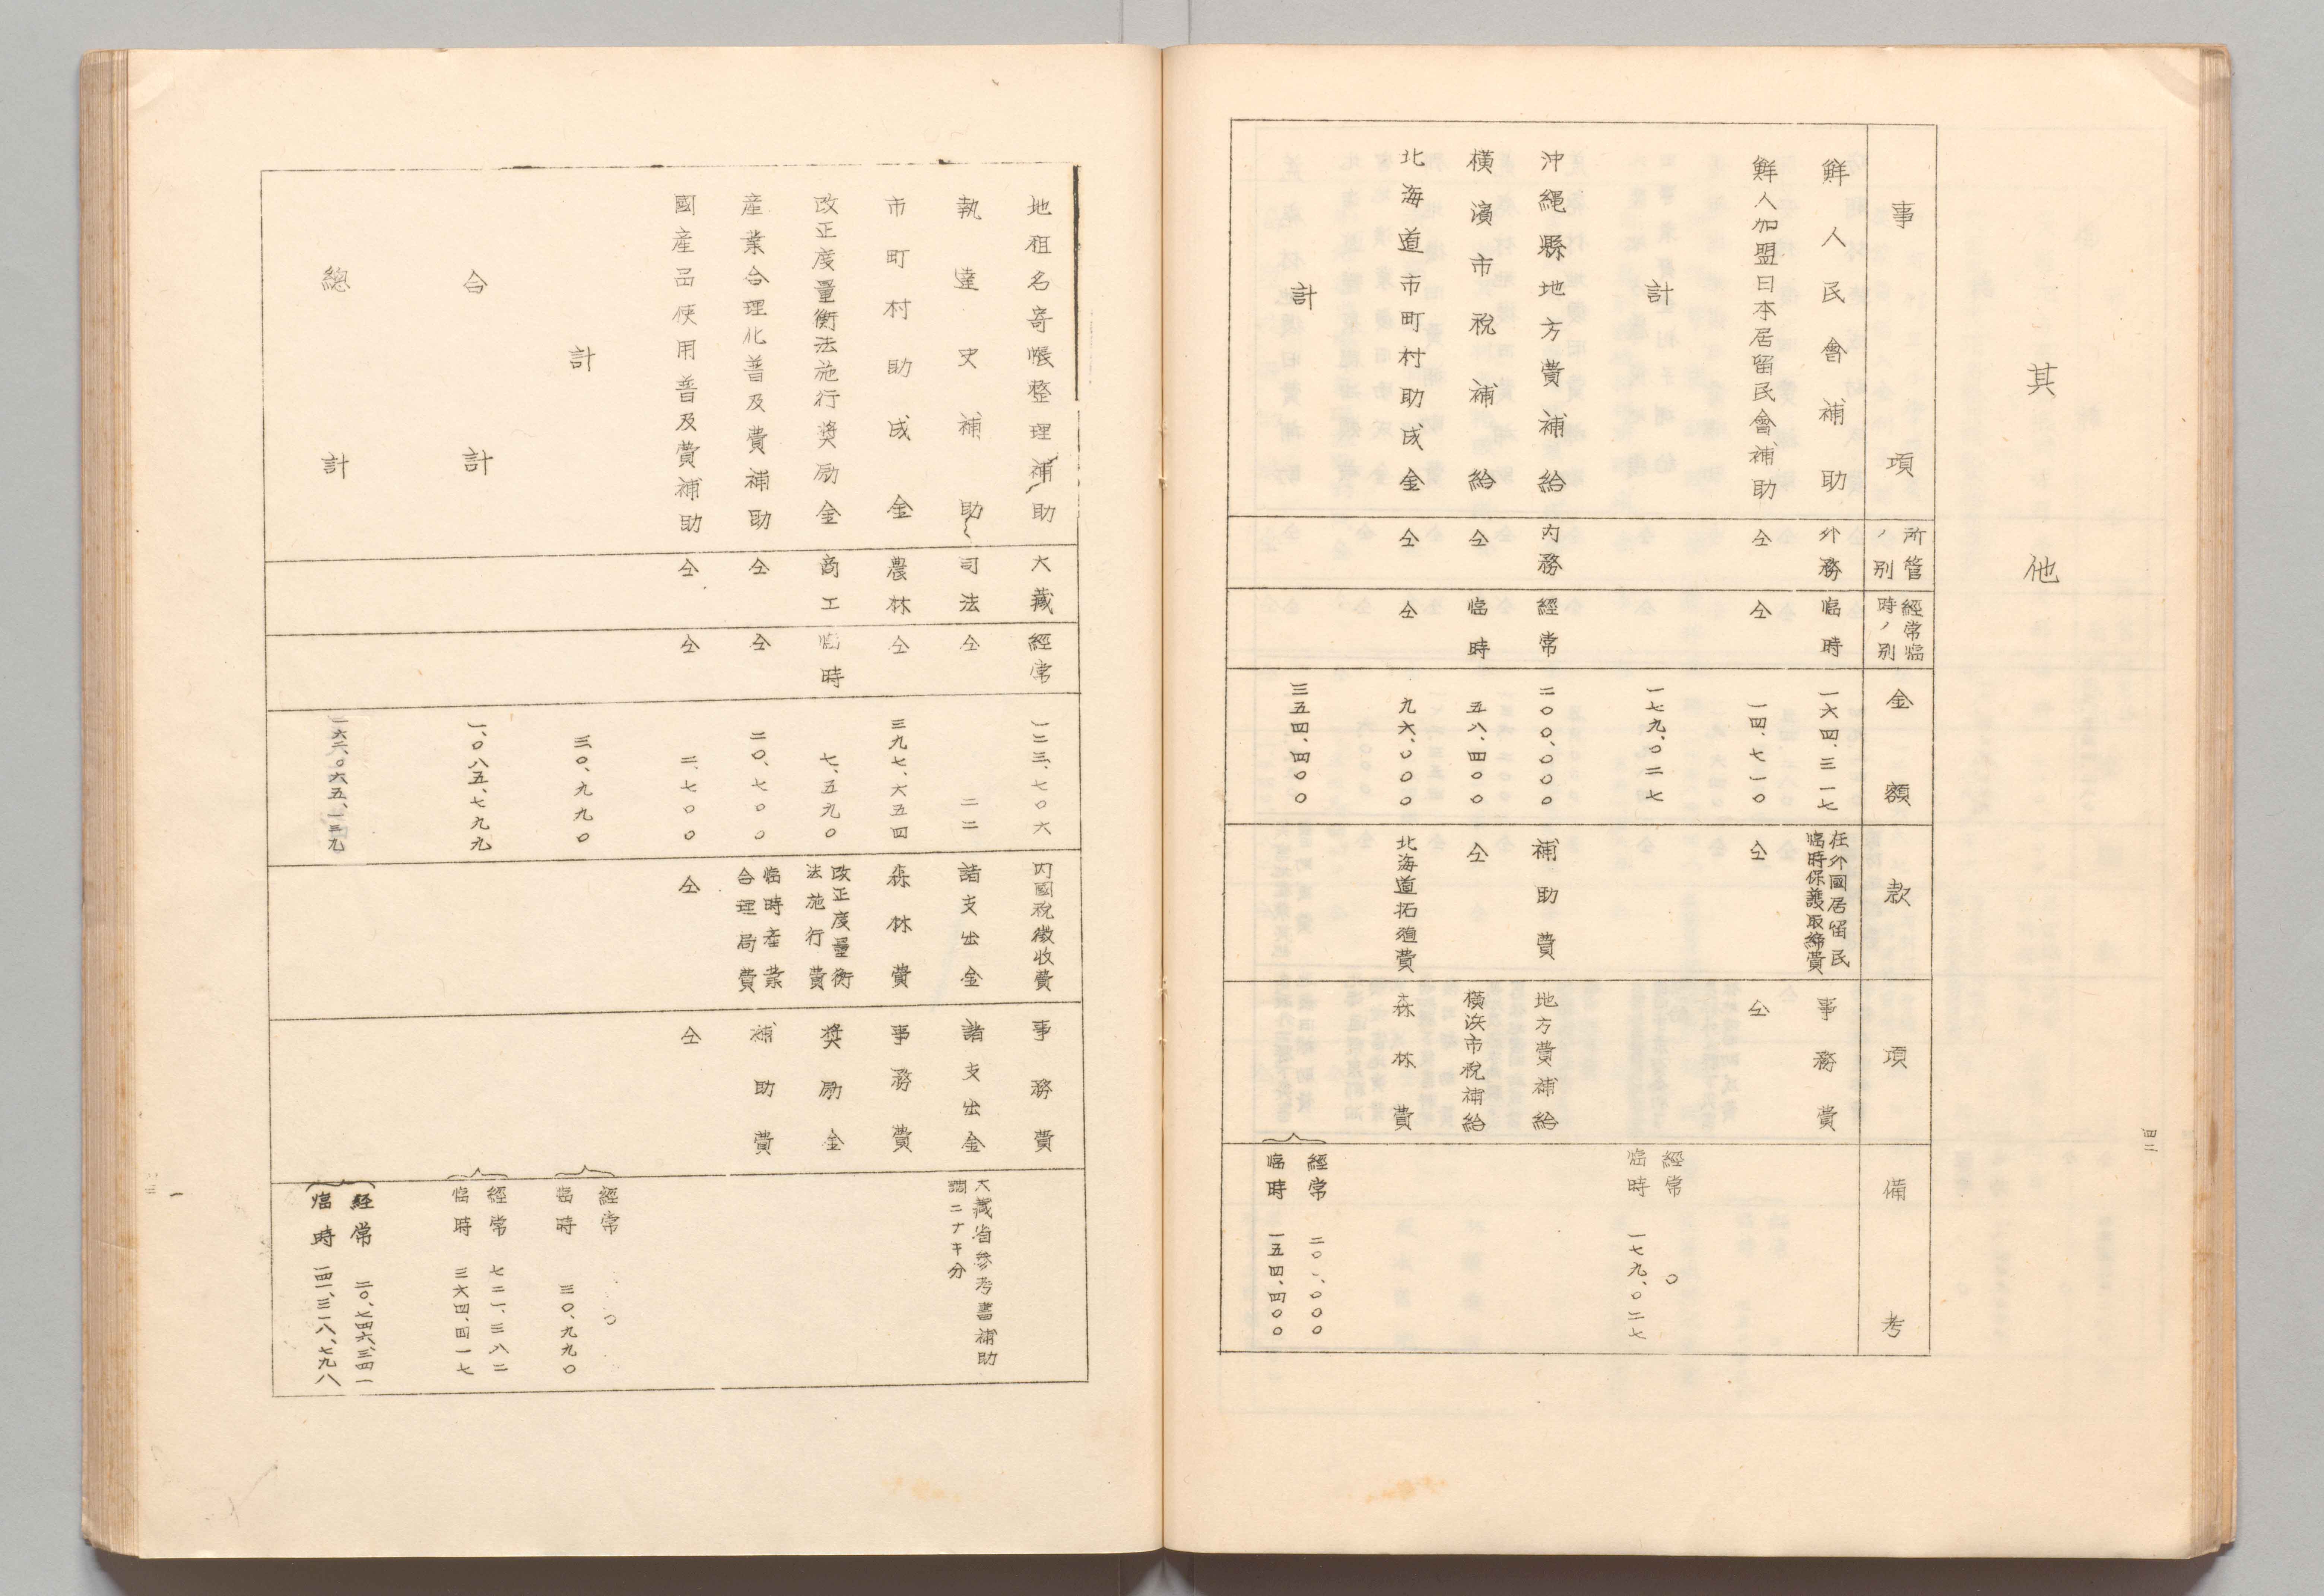 其他
事項
所管ノ別
經常臨時ノ別
金額
款
項
備考
鮮人民會補助
外務
臨時
一六四、三一七
在外國居留民臨時保護取締費
事務費
鮮人加盟日本居留民會補助
仝
仝
一四、七一〇
仝
仝
計
一七九、〇二七
經常 〇
臨時 一七九、〇二七
沖縄縣地方費補給
内務
經常
二〇〇、〇〇〇
補助費
地方費補給
横濱市税補給
仝
臨時
五八、四〇〇
仝
横浜市税補給
北海道市町村助成金
仝
仝
九六、〇〇〇
北海道拓殖費
森林費
計
三五四、四〇〇
經常 二〇〇、〇〇〇
臨時 一五四、四〇〇
四二
地租名寄帳整理補助
大藏
經常
一二三、七〇六
内國税徴收費
事務費
執達吏補助
司法
仝
二二
諸支出金
諸支出金
大藏省参考書補助調ニナキ分
市町村助成金
農林
仝
三九七、六五四
森林費
事務費
改正度量衡法施行奨励金
商工
臨時
七、五九〇
改正度量衡法施行費
奨励金
産業合理化普及費補助
仝
仝
二〇、七〇〇
臨時産業合理局費
補助費
國産品使用普及費補助
仝
仝
二、七〇〇
仝
仝
計
三〇、九九〇
經常 〇
臨時 三〇、九九〇
合計
一、〇八五、七九九
經常 七二一、三八二
臨時 三六四、四一七
總計
一六二、〇六五、一三九
經常 二〇、七四六、三四一
臨時 一四一、三一八、七九八